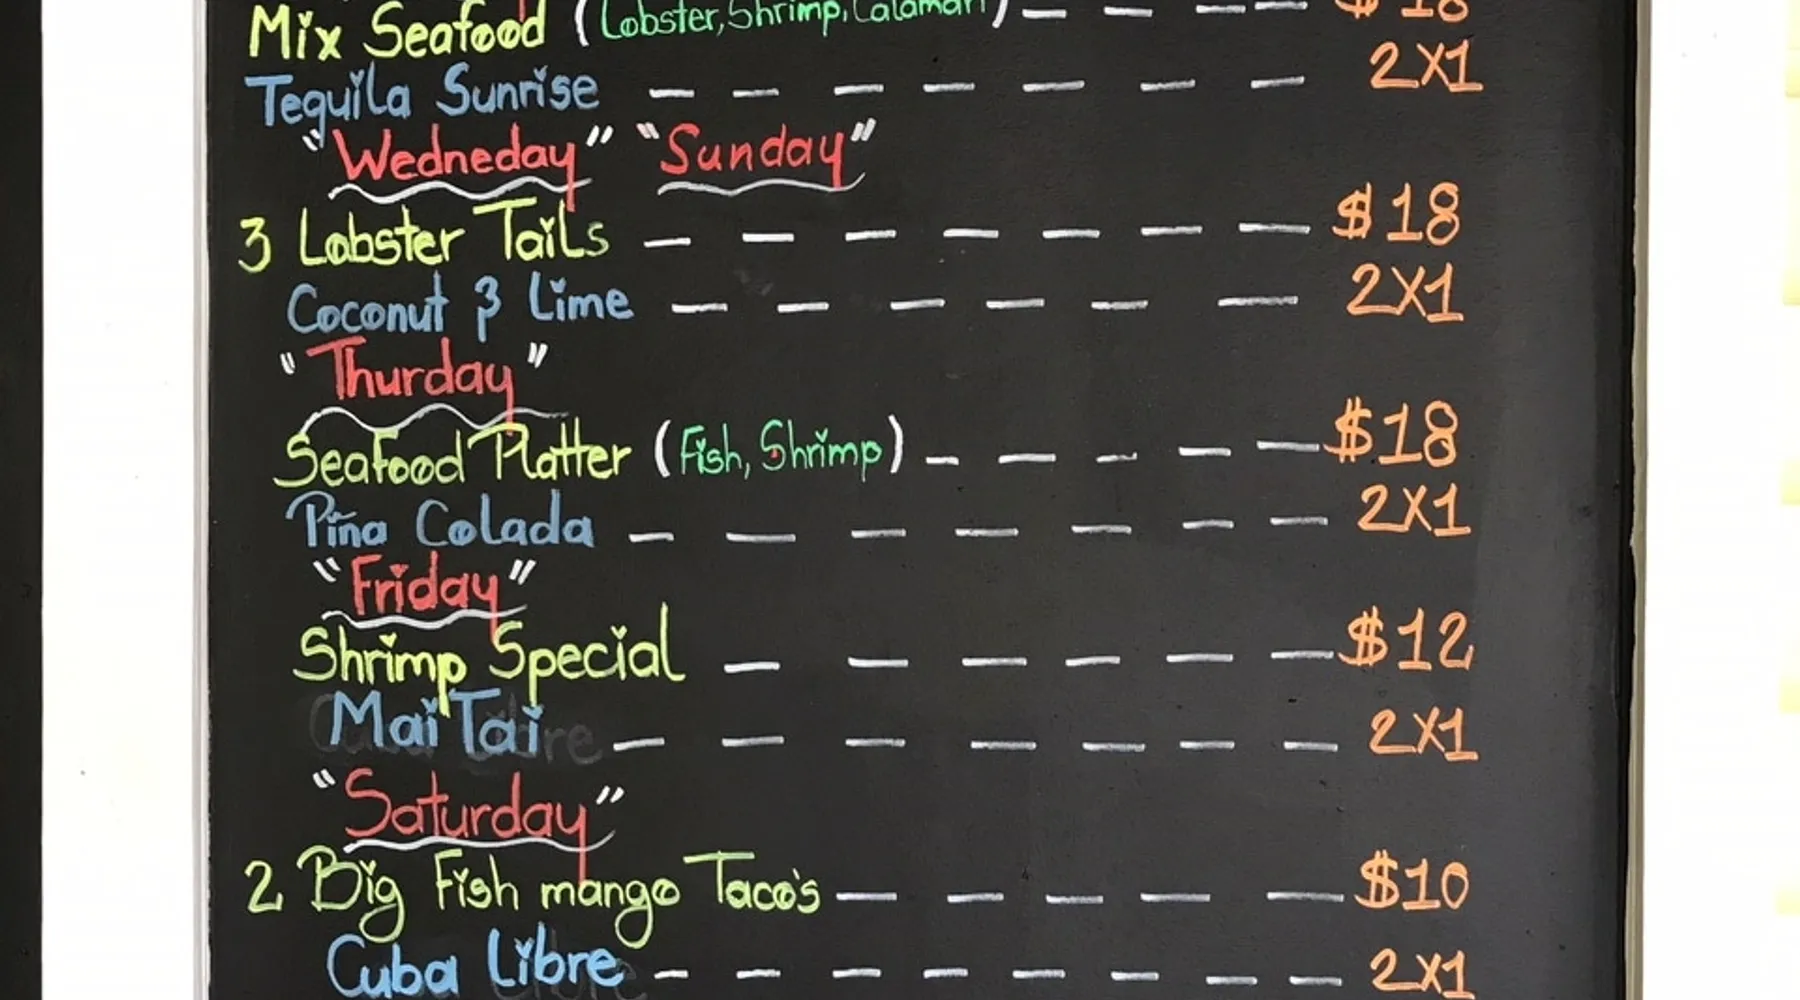 Mix Seafood (Lobster, Shrimp, Calamari) — — — — $18
Tequila Sunrise — — — — — — — 2X1
"Wedneday" "Sunday"
3 Lobster Tails — — — — — — — $18
Coconut & Lime — — — — — — 2X1
"Thurday"
Seafood Platter (Fish, Shrimp) — — — — — $18
Piña Colada — — — — — — — 2X1
"Friday"
Shrimp Special — — — — — — $12
Mai Tai — — — — — — — 2X1
"Saturday"
2 Big Fish mango Taco's — — — — — $10
Cuba Libre — — — — — — — — 2X1